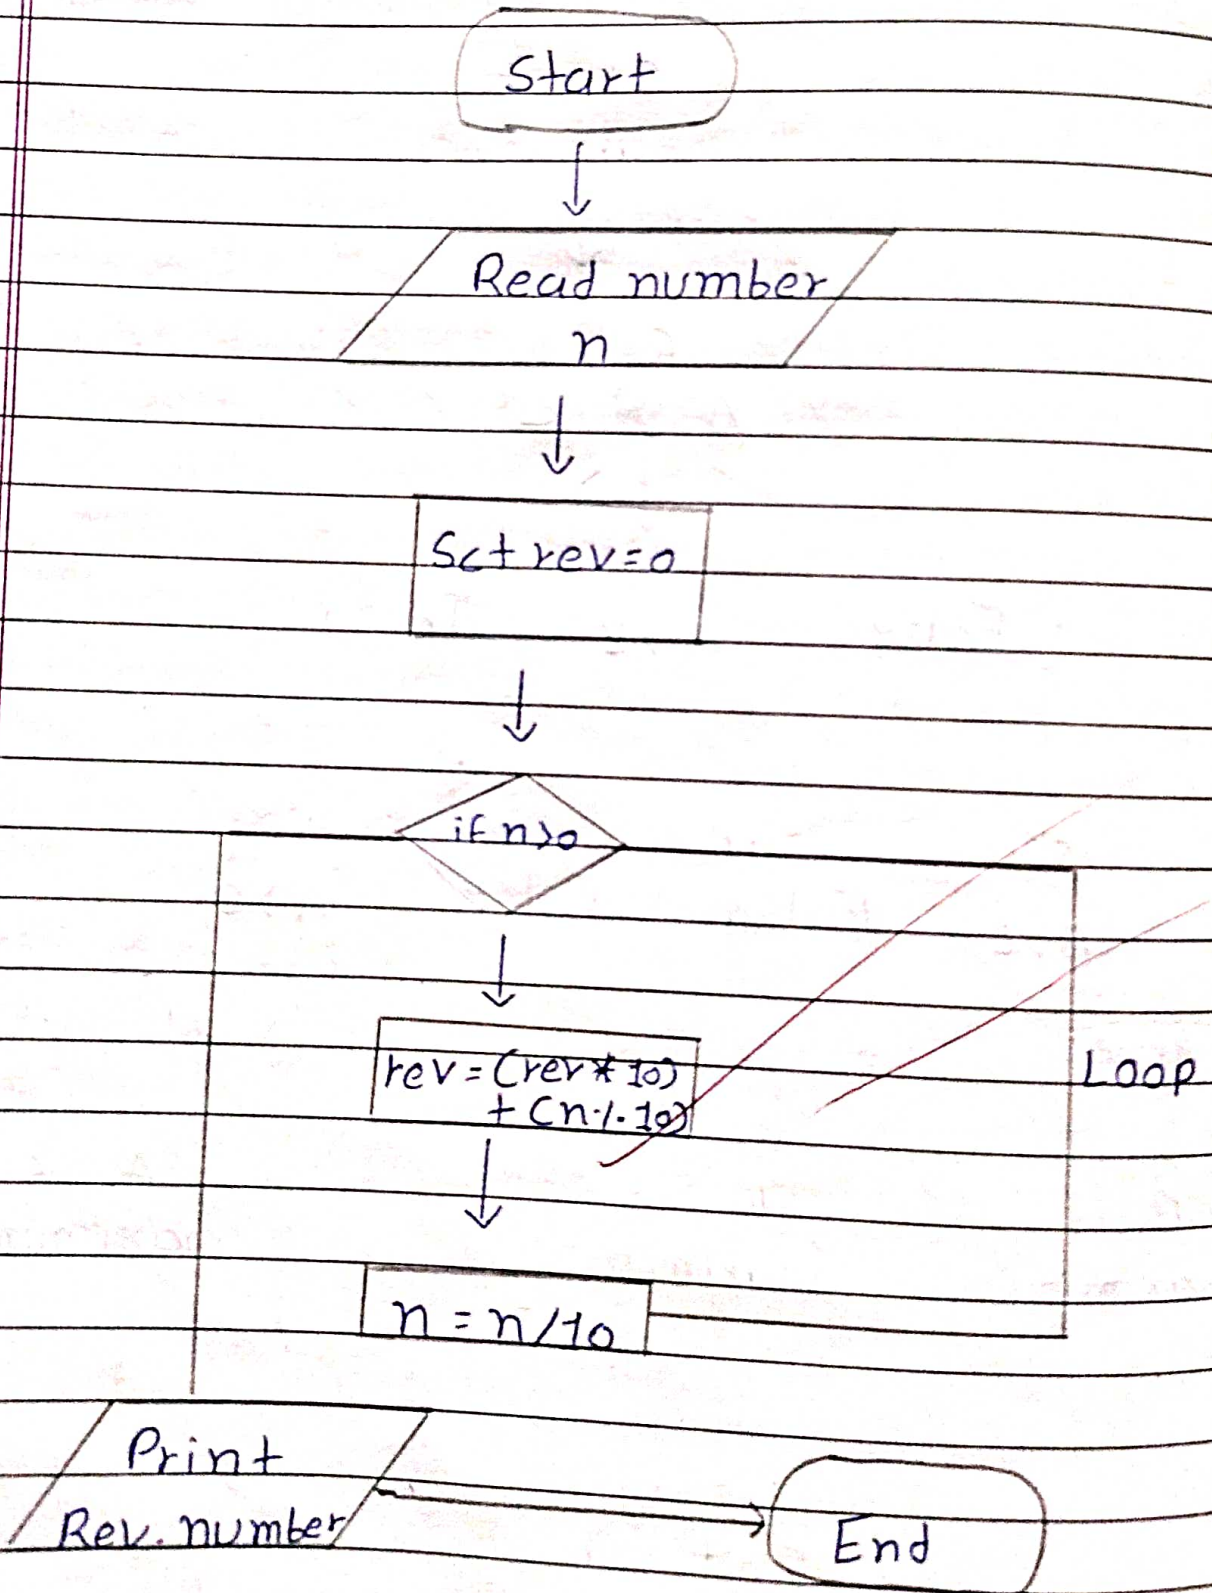 Start
Read number
n
Set rev=0
if n>0
rev = (rev * 10)
+ (n % 10)
Loop
n = n/10
Print
Rev. number
End